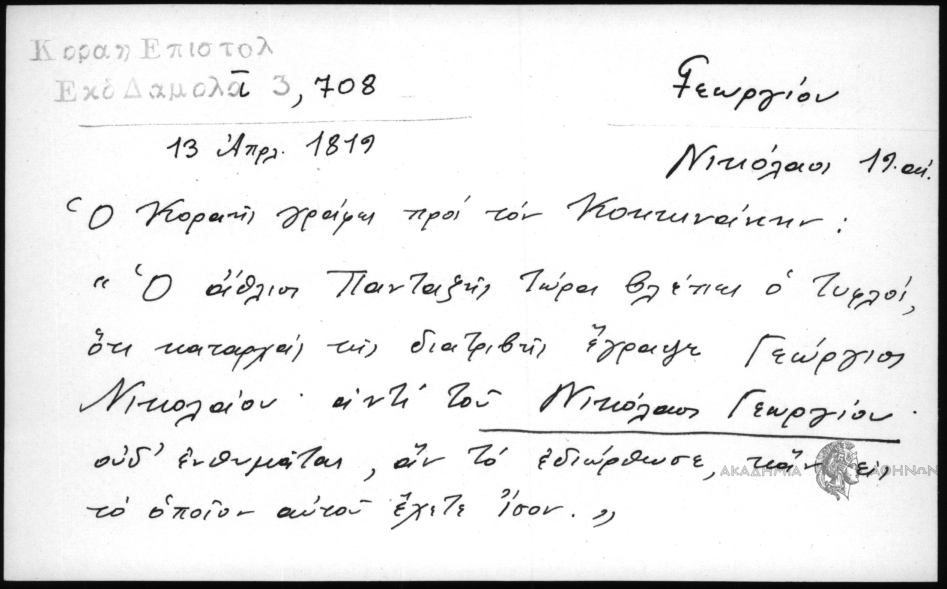 Κοραη Επιστολ
Εκδ Δαμαλά 3, 708
Γεωργίου
13 Ἀπρλ. 1819
Νικόλαος 19. αἰ.
Ὁ Κοραῆς γράφει πρὸς τὸν Κοκκινάκην :
“ Ὁ ἄθλιος Πανταζῆς τώρα βλέπει ὁ τυφλός,
ὅτι καταρχὰς τῆς διατριβῆς ἔγραψε Γεώργιος
Νικολαίου· ἀντὶ τοῦ Νικόλαος Γεωργίου·
οὐδ’ ἐνθυμᾶται, ἂν τὸ ἐδιώρθωσε, κἂν εἰς
τὸ ὁποῖον αὐτοῦ ἔχετε ἴσον. „
ΑΚΑΔΗΜΙΑ ΑΘΗΝΩΝ